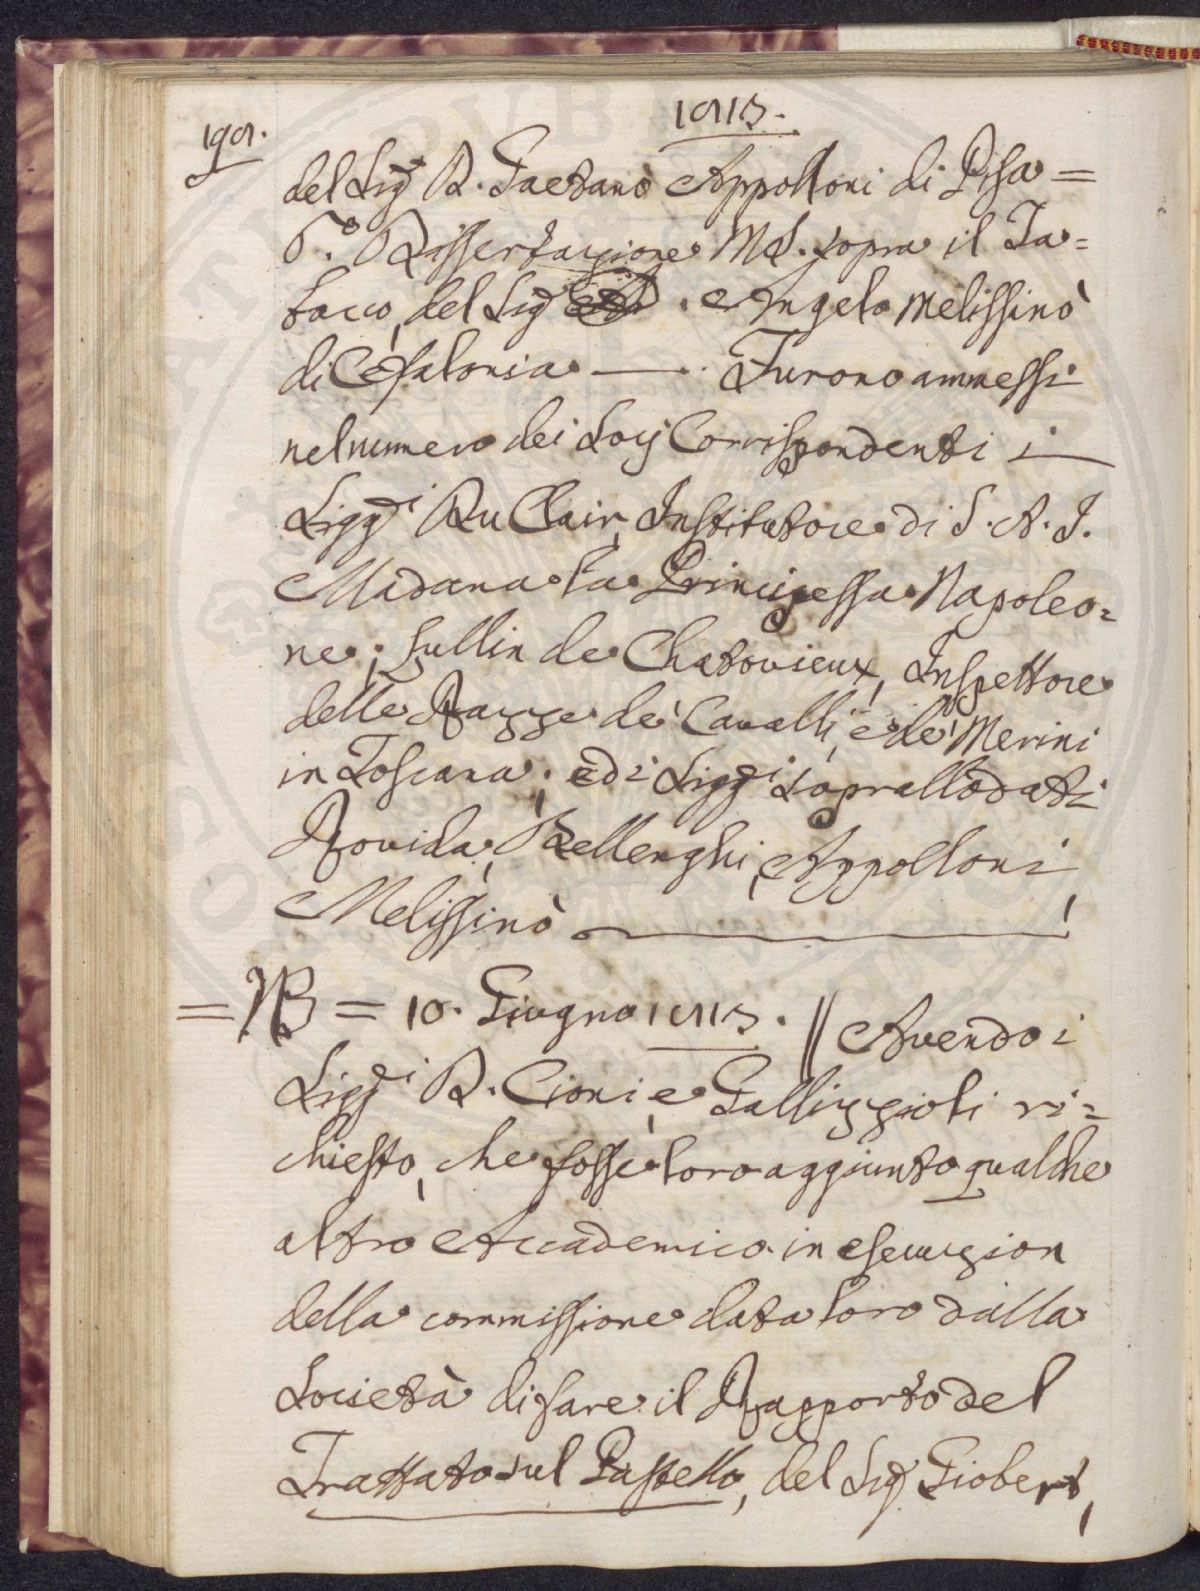 1813.
198.
del Sig.r D. Gaetano Appolloni di Pisa =
6.° Dissertazione MS. sopra il Ta=
bacco, del Sig.r Angelo Melissinò
di Cefalonia —. Furono ammessi
nel numero dei Socj Corrispondenti i
Sigg.ri Du Clair, Institutore di S. A. I.
Madama la Principessa Napoleo=
ne; Lullin de Chatovieux, Inspettore
delle Razze de' Cavalli, e de' Merini
in Toscana; ed i Sigg.ri soprallodati
Rovida, Bellenghi, Appolloni,
Melissinò —
= NB = 10. Giugno 1813. || Avendo i
Sigg.ri D. Cioni, e Gallizzioli ri=
chiesto, che fosse loro aggiunto qualche
altro Accademico in esecuzion
della commissione data loro dalla
Società di fare il Rapporto del
Trattato sul Pastello, del Sig.r Giobert,